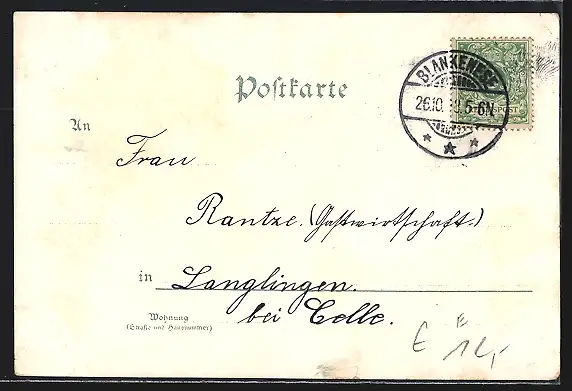 Postkarte
BLANKENESE
26.10.
5-6N
An
Frau
Rantze. (Gastwirtschaft.)
in Langlingen.
bei Celle.
Wohnung
(Straße und Hausnummer)
E
12,-